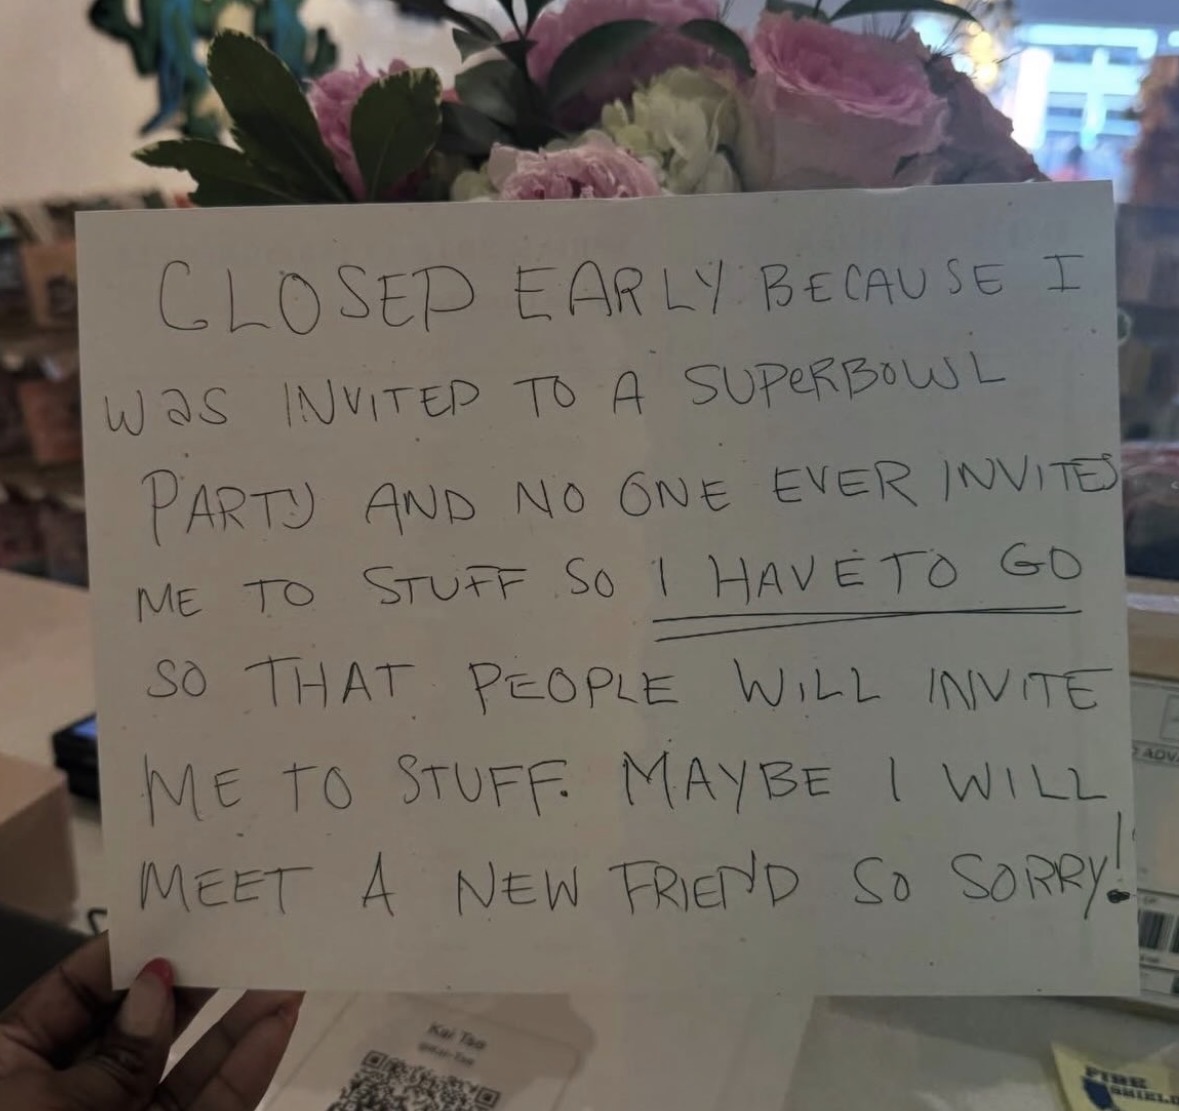 CLOSED EARLY BECAUSE I
WaS INVITED TO A SUPeRBOWL
PARTY AND NO ONE EVER INVITES
ME TO STUFF SO I HAVE TO GO
SO THAT PEOPLE WILL INVITE
ME TO STUFF. MAYBE I WILL
MEET A NEW FRIEND SO SORRY!
Kai Tao
FIRE
SHIELD